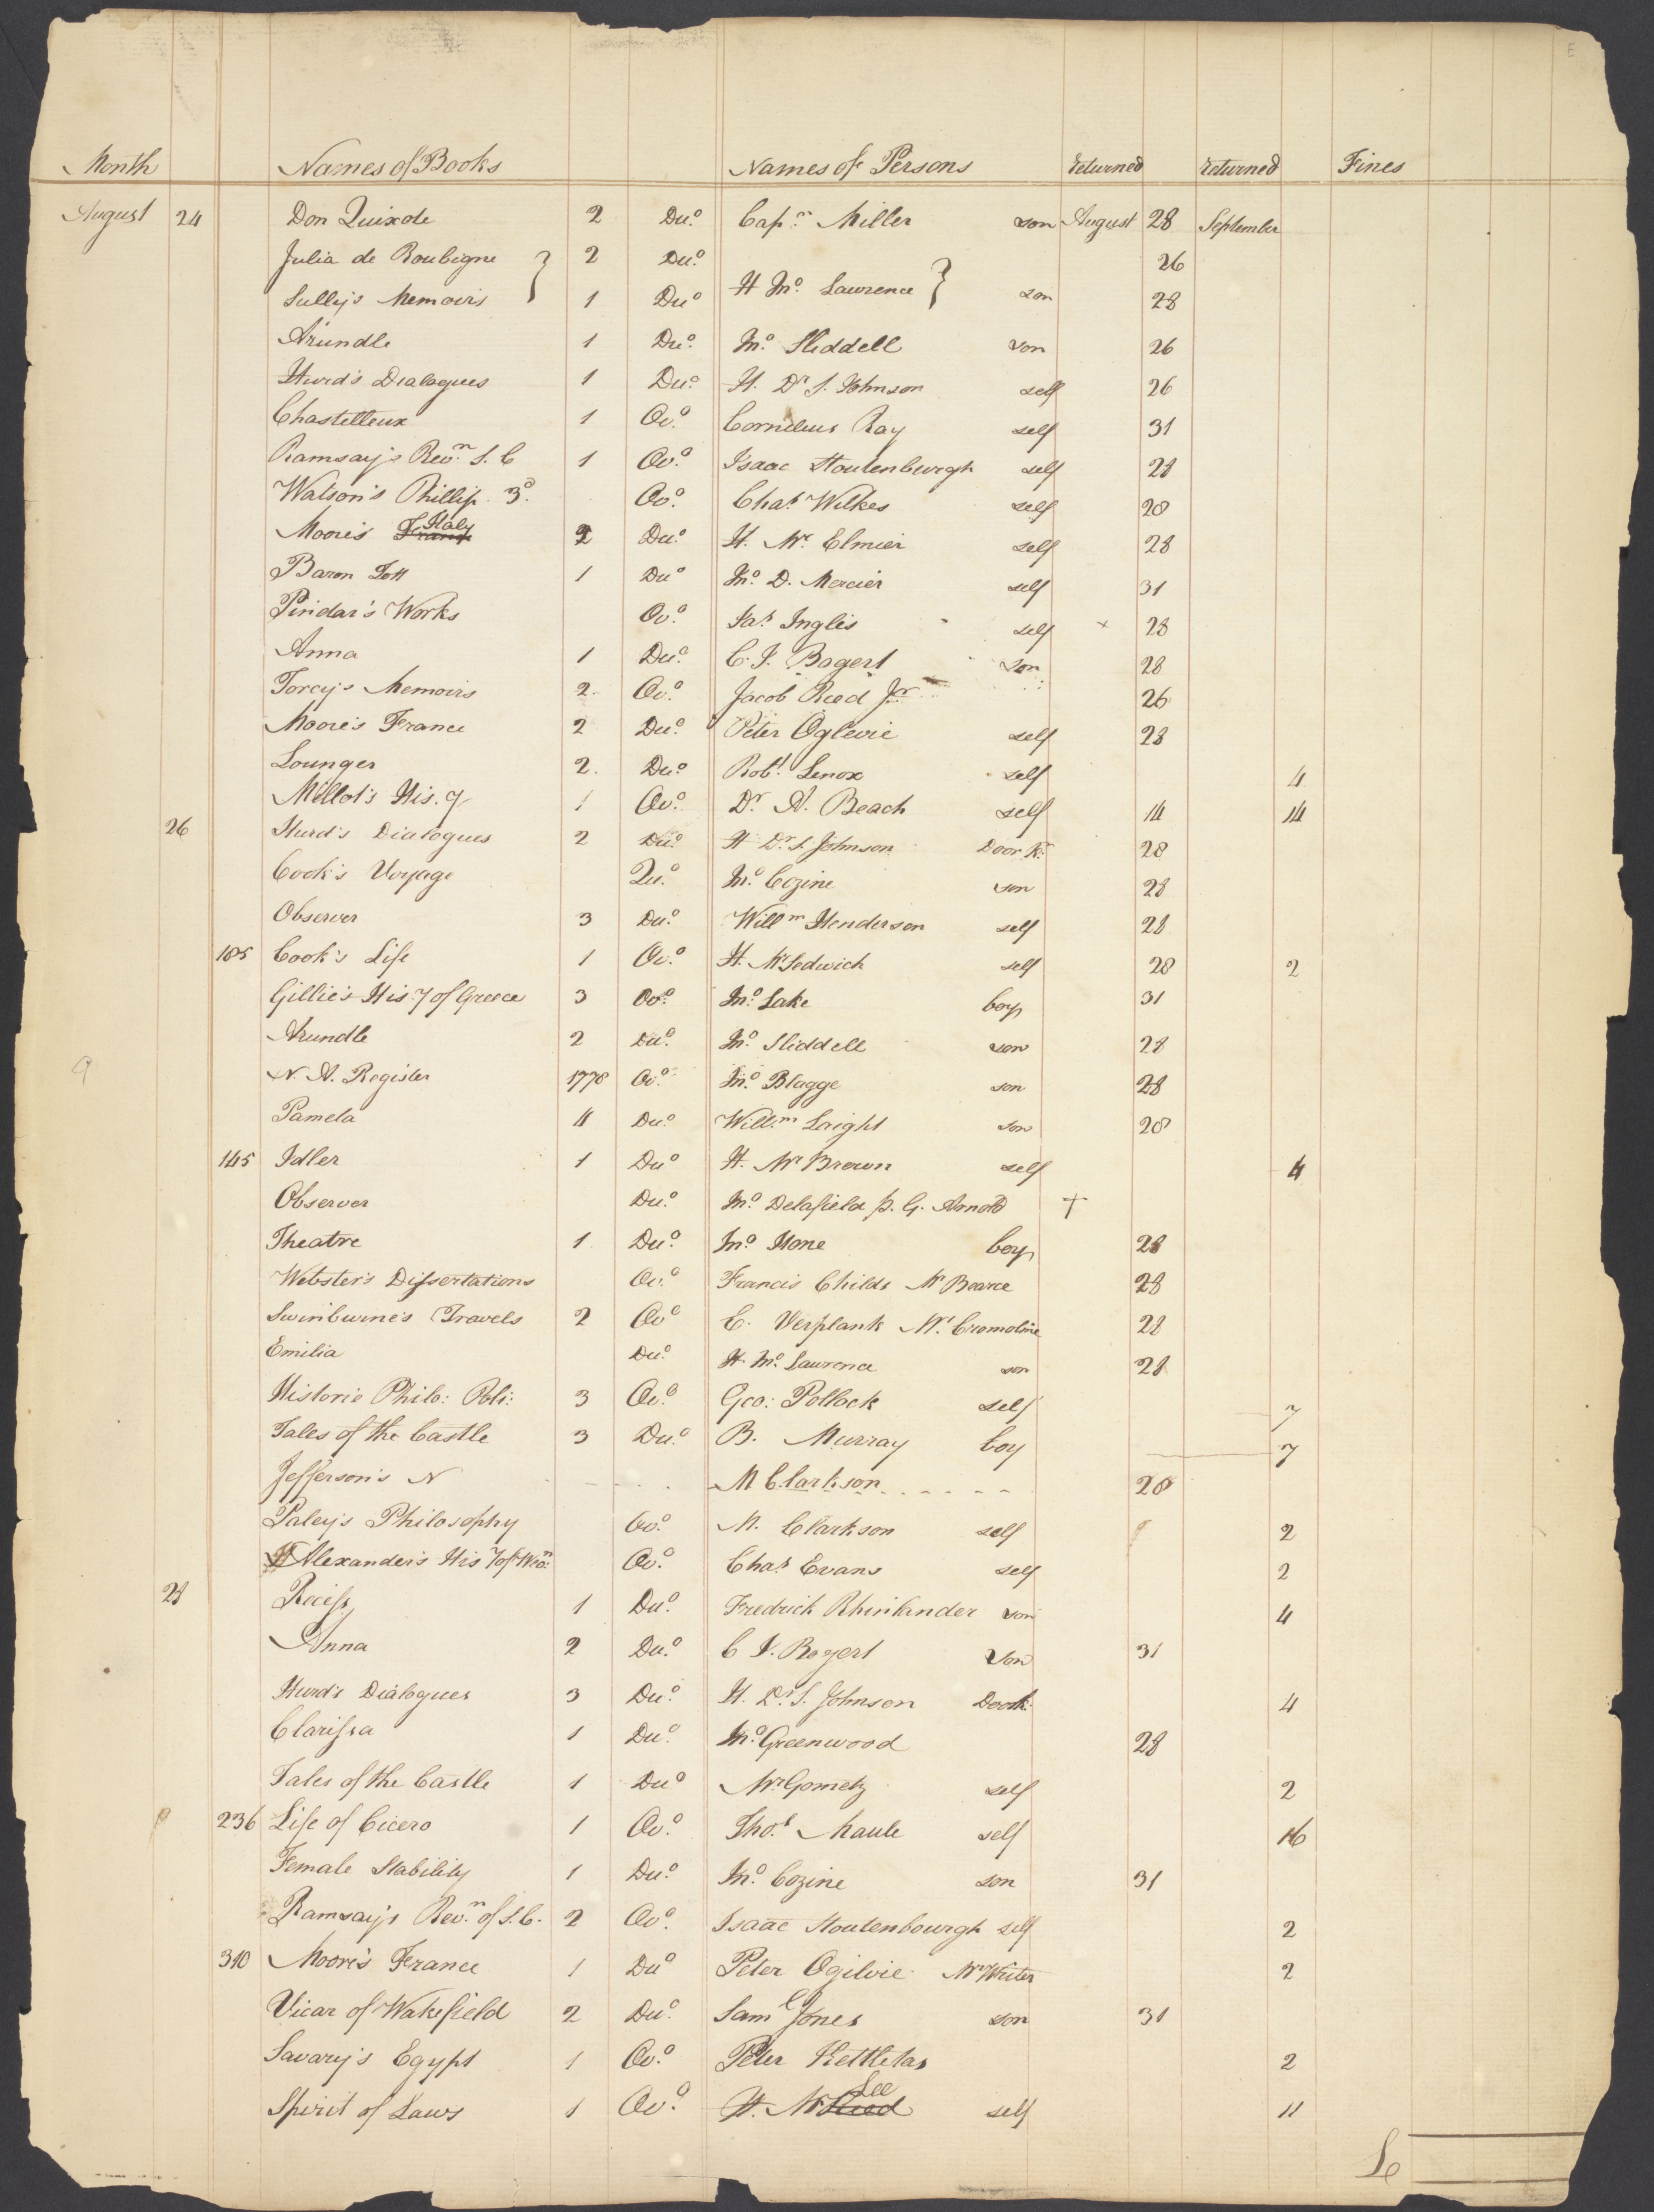 Month Names of Books Names of Persons returned returned Fines
August 24 Don Quixote 2 Duo. Capn. Miller son August 28 September
Julia de Roubigne } 2 Duo. 26
Sully's Memoirs 1 Duo H Jno. Lawrence } son 28
Arundle 1 Duo. Jno. Sliddell son 26
Hurd's Dialogues 1 Duo. H. Dr S. Johnson self 26
Chastelleux 1 Ovo. Cornelius Ray self 31
Ramsay's Revn. S. C 1 Ovo. Isaac Stoutenburgh self 28
Watson's Phillip 3d. Ovo. Chas Wilkes self 28
Moore's Italy 2 Duo. H. Mr. Elmier self 28
Baron Tott 1 Duo Jno. D. Mercier self 31
Pindar's Works Ovo. Jas Inglis self + 28
Anna 1 Duo. C. J. Bogert son 28
Torcy's Memoirs 2. Ovo. Jacob Reed Jr 26
Moore's France 2 Duo. Peter Oglevie self 28
Lounger 2. Duo. Robt. Lenox self 4
Millot's His.y 1 Ovo. Dr A. Beach self 14 14
26 Hurd's Dialogues 2 Duo. H Dr S Johnson Door Kr. 28
Cook's Voyage Quo. Jno. Cozine son 28
Observer 3 Duo. Willm Henderson self 28
185 Cook's Life 1 Ovo. H. Mr Sedwich self 28 2
Gillie's His.y of Greece 3 Ovo. Jno. Lake boy 31
Arundle 2 Duo. Jno. Sliddell son 28
N. A. Register 1778 Ovo. Jno. Blagge son 28
Pamela 4 Duo. Willm. Laight son 28
145 Idler 1 Duo H. Mr Brown self 4
Observer Duo. Jno. Delafield p. G. Arnold +
Theatre 1 Duo. Jno Hone boy 28
Webster's Dissertations Ovo. Francis Childs Mr Bearce 28
Swinburne's Travels 2 Ovo G. Verplank Mr. Cromoline 28
Emilia Duo. H. Jno. Lawrence son 28
Historie Philo: Poli: 3 Ovo. Geo: Pollock self 7
Tales of the Castle 3 Duo. B. Murray boy 7
Jefferson's N M Clarkson 28
Paley's Philosophy Ovo. M. Clarkson self 2
Alexander's His.y of Won. Ovo. Chas Evans self 2
28 Recess 1 Duo. Fredrick Rhinlander son 4
Anna 2 Duo. C J. Bogert Son 31
Hurd's Dialogues 3 Duo. H. Dr S. Johnson Doork. 4
Clarissa 1 Duo. Jno. Greenwood 28
Tales of the Castle 1 Duo Mr Gometz self 2
236 Life of Cicero 1 Ovo. Thos. Maule self 16
Female Stability 1 Duo. Jno. Cozine son 31
Ramsay's Revn. of S. C. 2 Ovo. Isaac Stoutenbourgh self 2
310 Moore's France 1 Duo Peter Ogilvie Mr Writer 2
Vicar of Wakefield 2 Duo. Saml Jones son 31
Savary's Egypt 1 Ovo. Peter Kettletas 2
Spirit of Laws 1 Ovo. H. Mr Lee self 11